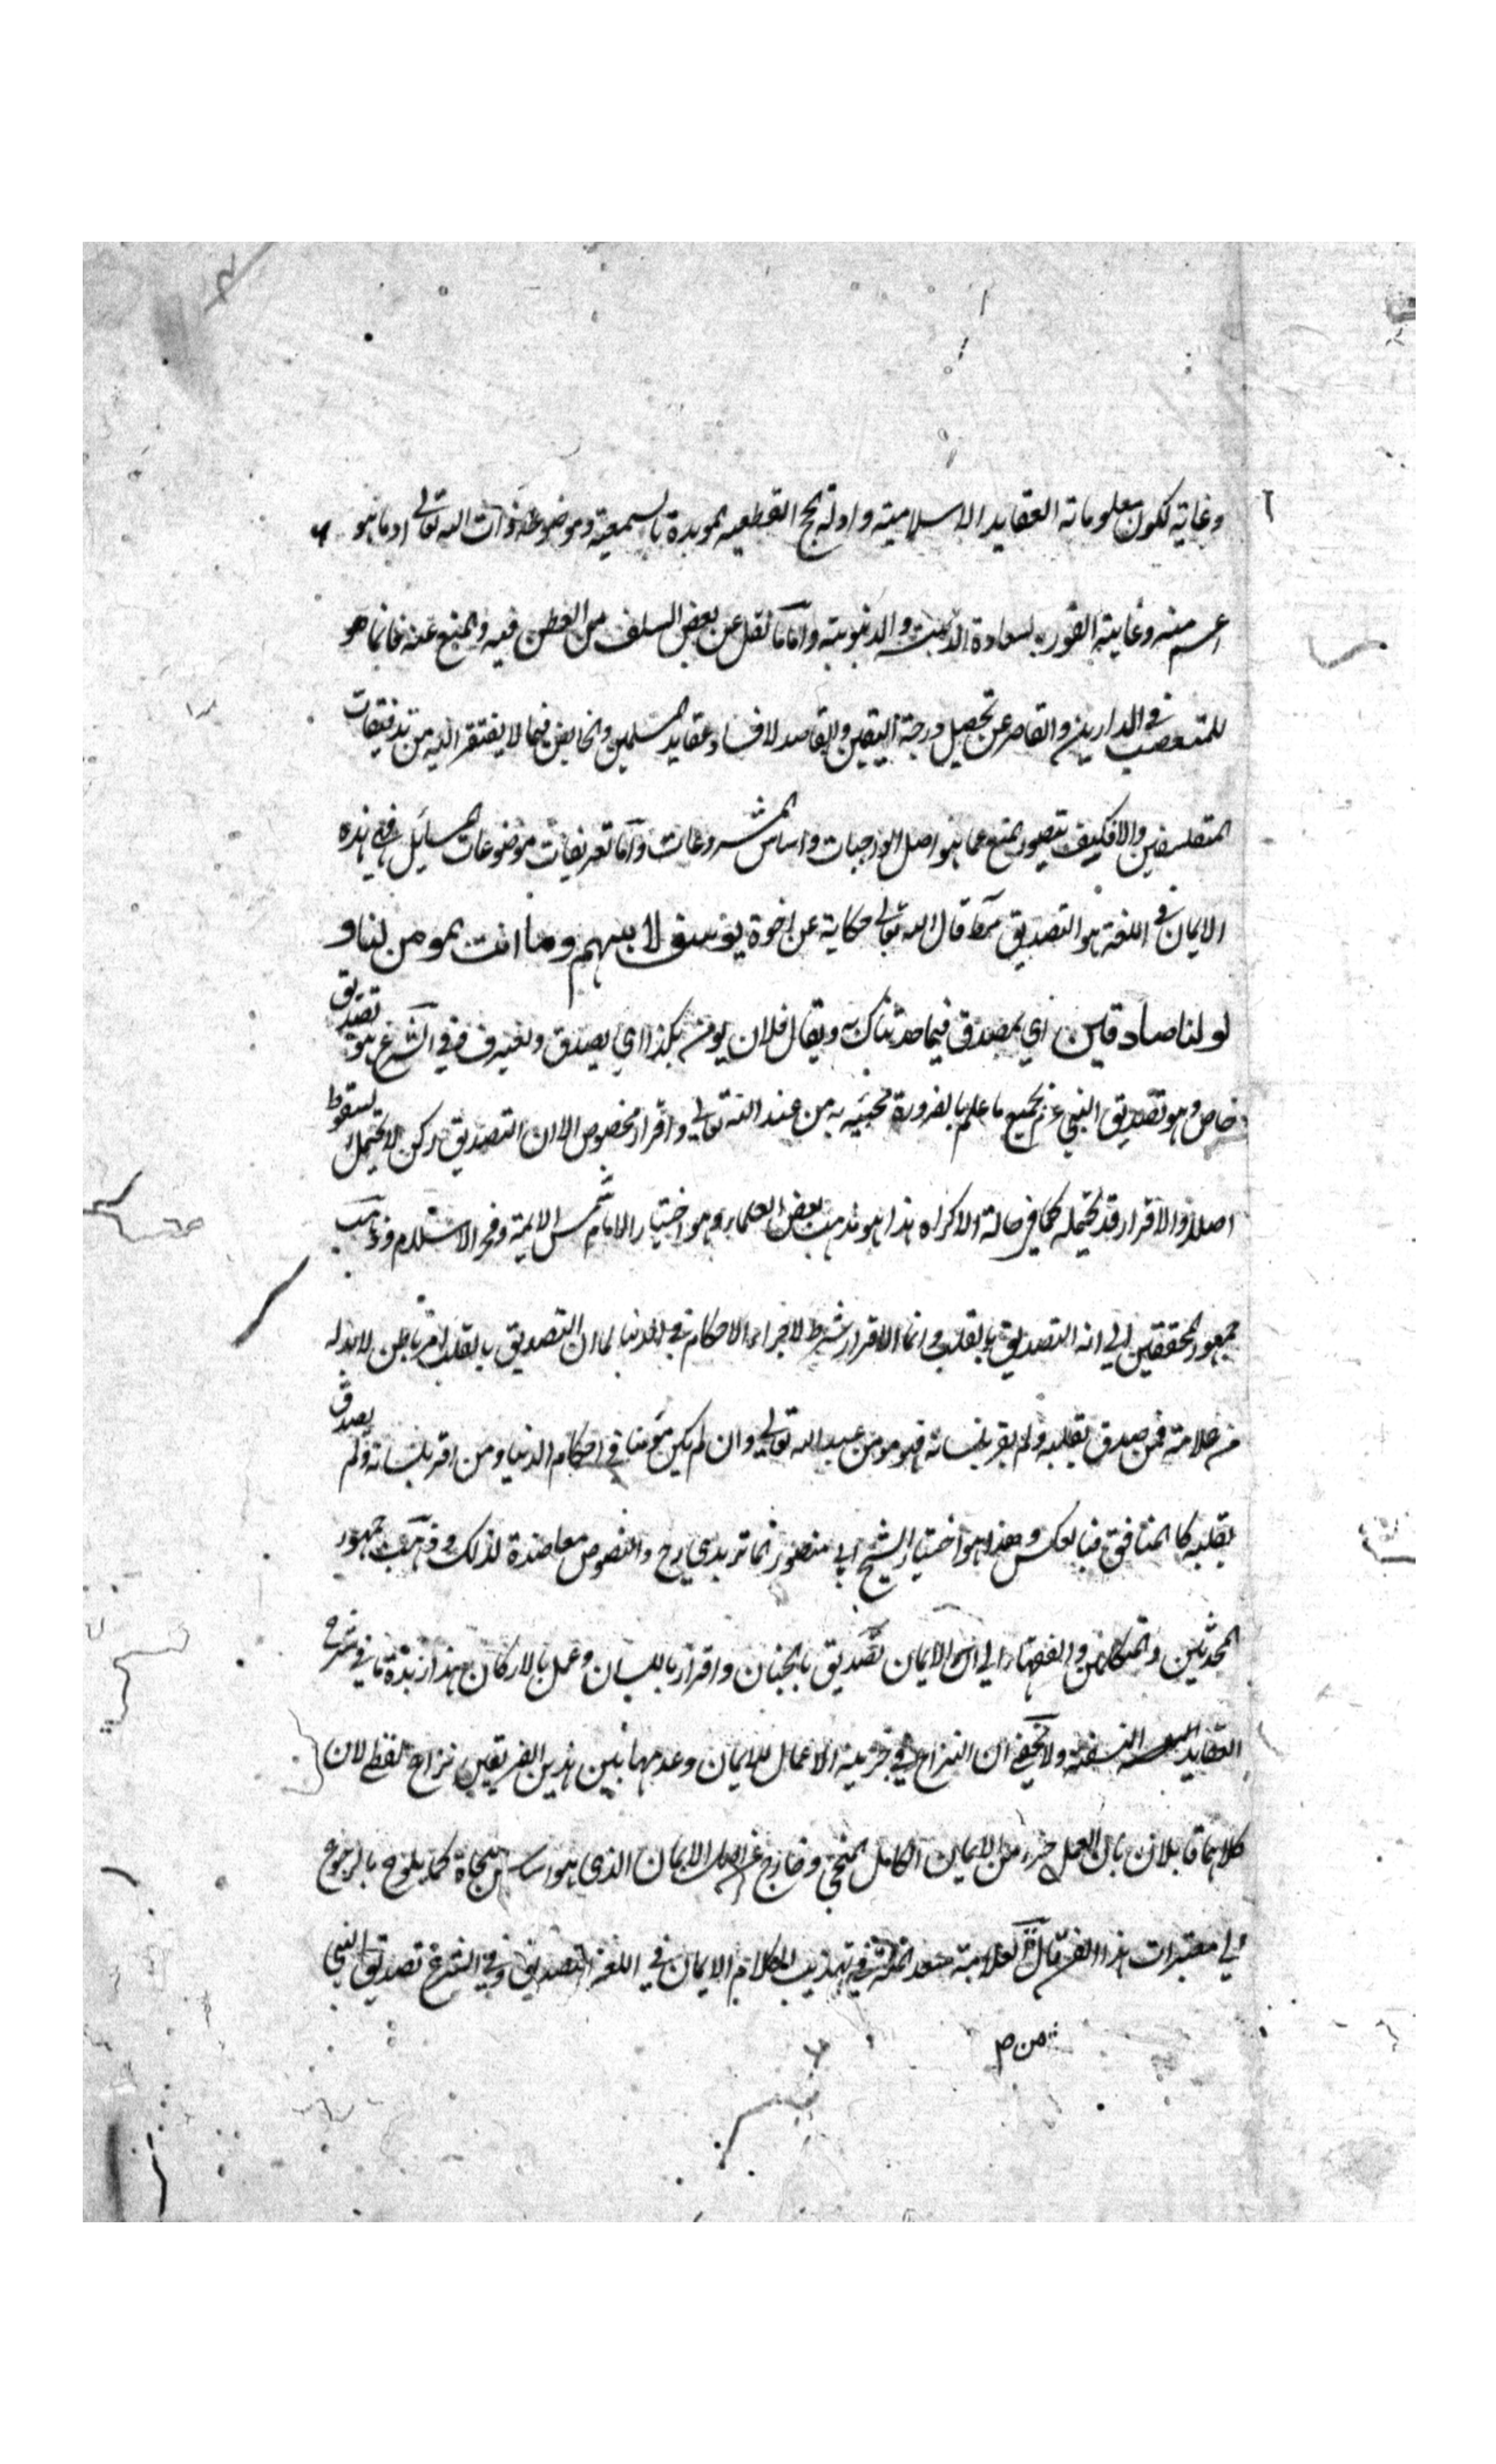 وغايته لكون معلوماته العقايد الاسلاميته وادلته الحج القطعيه المويدة بالسمعية وموضوعه ذات الله تعالى او ما هو
اعم منه وغايته الفوز بسعادة الدينية والدنيوية واما ما نقل عن بعض السلف من الطعن فيه والمنع عنه فانما هو
للمتعصب في الدارين والقاصر عن تحصيل درجة اليقين والقاصد لافساد عقايد المسلمين والخايض فيما لا يفتقر اليه من تدقيقات
المتفلسفين والا فكيف يتصور المنع عما هو اصل الواجبات واساس المشروعات واما تعريفات موضوعات المسايل فهي هذه
الايمان في اللغة هو التصديق قال الله تعالى حكاية عن اخوة يوسف لابيهم وما انت بمومن لنا و
لو لنا صادقين اي بمصدق فيما حدثناك به ويقال فلان يومن بكذا اي يصدق ويعترف وفي الشرع هو تصديق
خاص وهو تصديق النبي عم بجميع ما علم بالضرورة مجيئه به من عند الله تعالى واقرار مخصوص الا ان التصديق ركن لا يحتمل السقوط
اصلا والاقرار قد يحتمله كما في حالة الاكراه هذا هو مذهب بعض العلماء وهو اختيار الامام شمس الايمة وفخر الاسلام وذهب
جمهور المحققين الى انه التصديق بالقلب وانما الاقرار شرط لاجراء الاحكام في الدنيا لما ان التصديق بالقلب امر باطن لا بد له
من علامة فمن صدق بقلبه ولم يقر بلسانه فهو مومن عند الله تعالى وان لم يكن مؤمنا في احكام الدنيا ومن اقر بلسانه ولم يصدق
بقلبه كالمنافق فبالعكس وهذا هو اختيار الشيخ ابي منصور الماتريدي رح والنصوص معاضدة لذلك وذهب جمهور
المحدثين والمتكلمين والفقهاء الى ان الايمان تصديق بالجنان واقرار باللسان وعمل بالاركان هذا زبدة ما في شرح
العقايد النسفية ولا يخفى ان النزاع في جزئية الاعمال للايمان وعدمها بين هذين الفريقين نزاع لفظي لان
كلاهما قايلان بان العمل جزء من الايمان الكامل المنجي وخارج عن اصل الايمان الذي هو اساس النجاة كما يلوح بالرجوع
الى معتبرات هذا الفن قال العلامة سعد الملة في تهذيب الكلام الايمان في اللغة التصديق وفي الشرع تصديق النبي